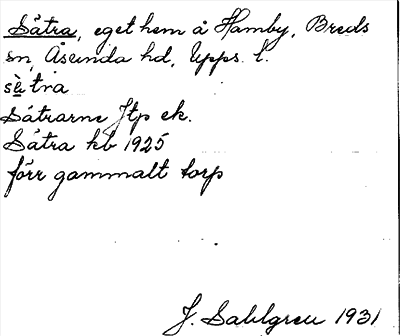 Sätra, eget hem å Hamby, Breds
sn, Åsunda hd, Upps. l.
sè̱tra
Sätrarne Jtp ek.
Sätra kb 1925
förr gammalt torp
J. Sahlgren 1931